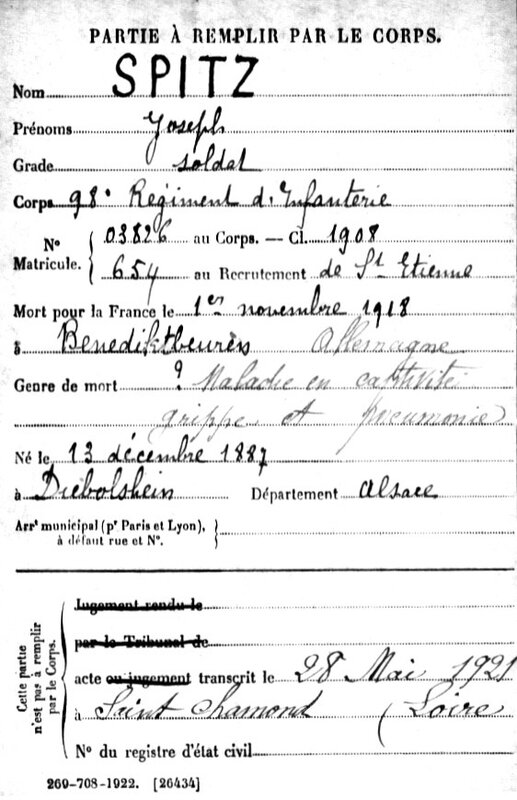 PARTIE À REMPLIR PAR LE CORPS.
Nom SPITZ
Prénoms Joseph
Grade soldat
Corps 98e Regiment d'Infanterie
N° Matricule. { 03826 au Corps. — Cl. 1908
654 au Recrutement de St Etienne
Mort pour la France le 1er novembre 1918
à Benediktbeuren Allemagne
Genre de mort ? Maladie en captivité
grippe et pneumonie
Né le 13 décembre 1887
à Diebolshein Département Alsace
Arrt municipal (pr Paris et Lyon),
à défaut rue et N°.
Cette partie n'est pas à remplir par le Corps.
Jugement rendu le
par le Tribunal de
acte ou jugement transcrit le 28 Mai 1921
à Saint Chamond (Loire
N° du registre d'état civil
269-708-1922. [26434]